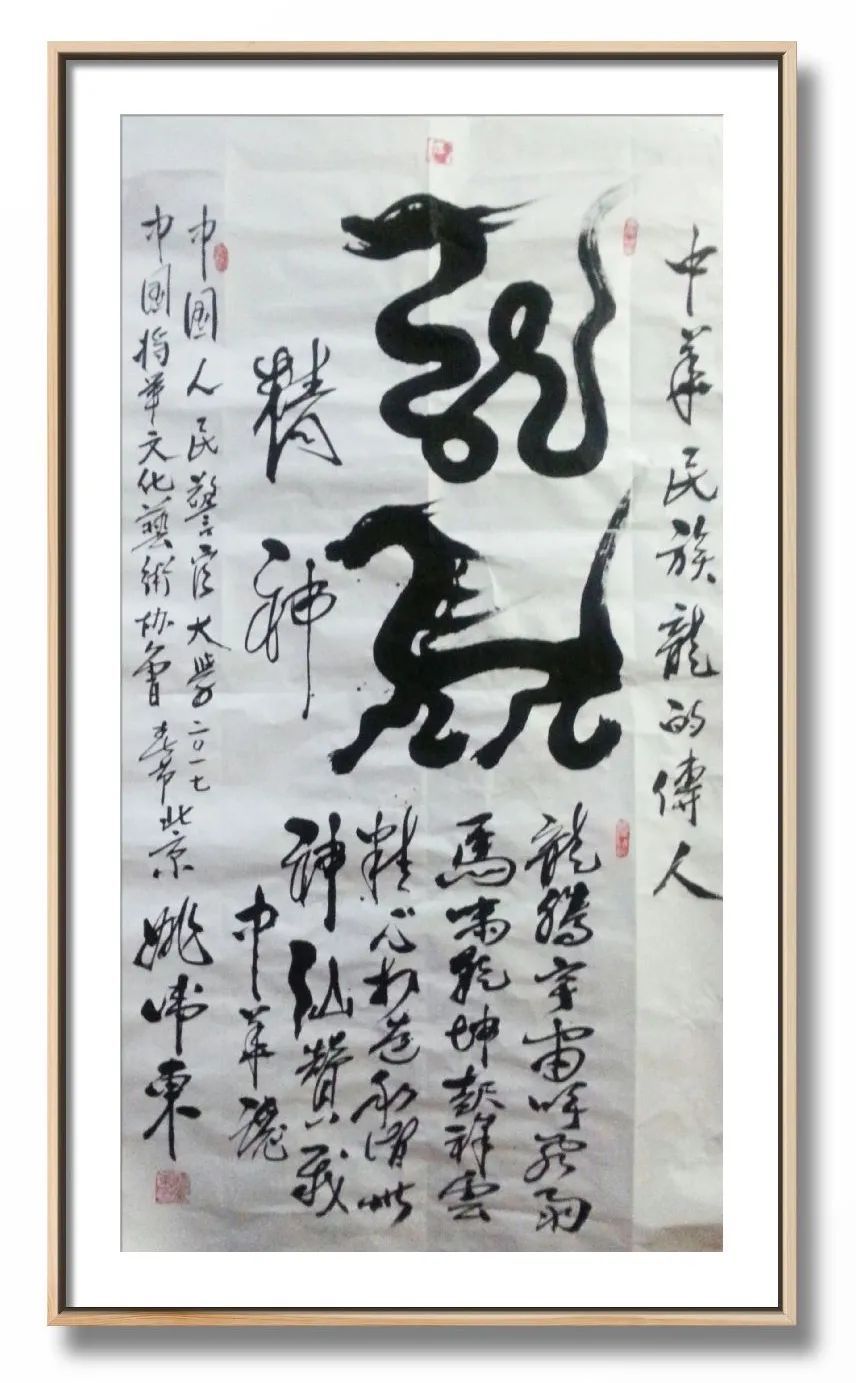 中華民族龍的傳人
龍馬
精神
龍騰宇宙呼雨
馬嘯乾坤起祥雲
精心打造永世
神仙贊我
中華魂
中國人民警官大學二〇一七
中國将軍文化藝術协會春节北京
姚東